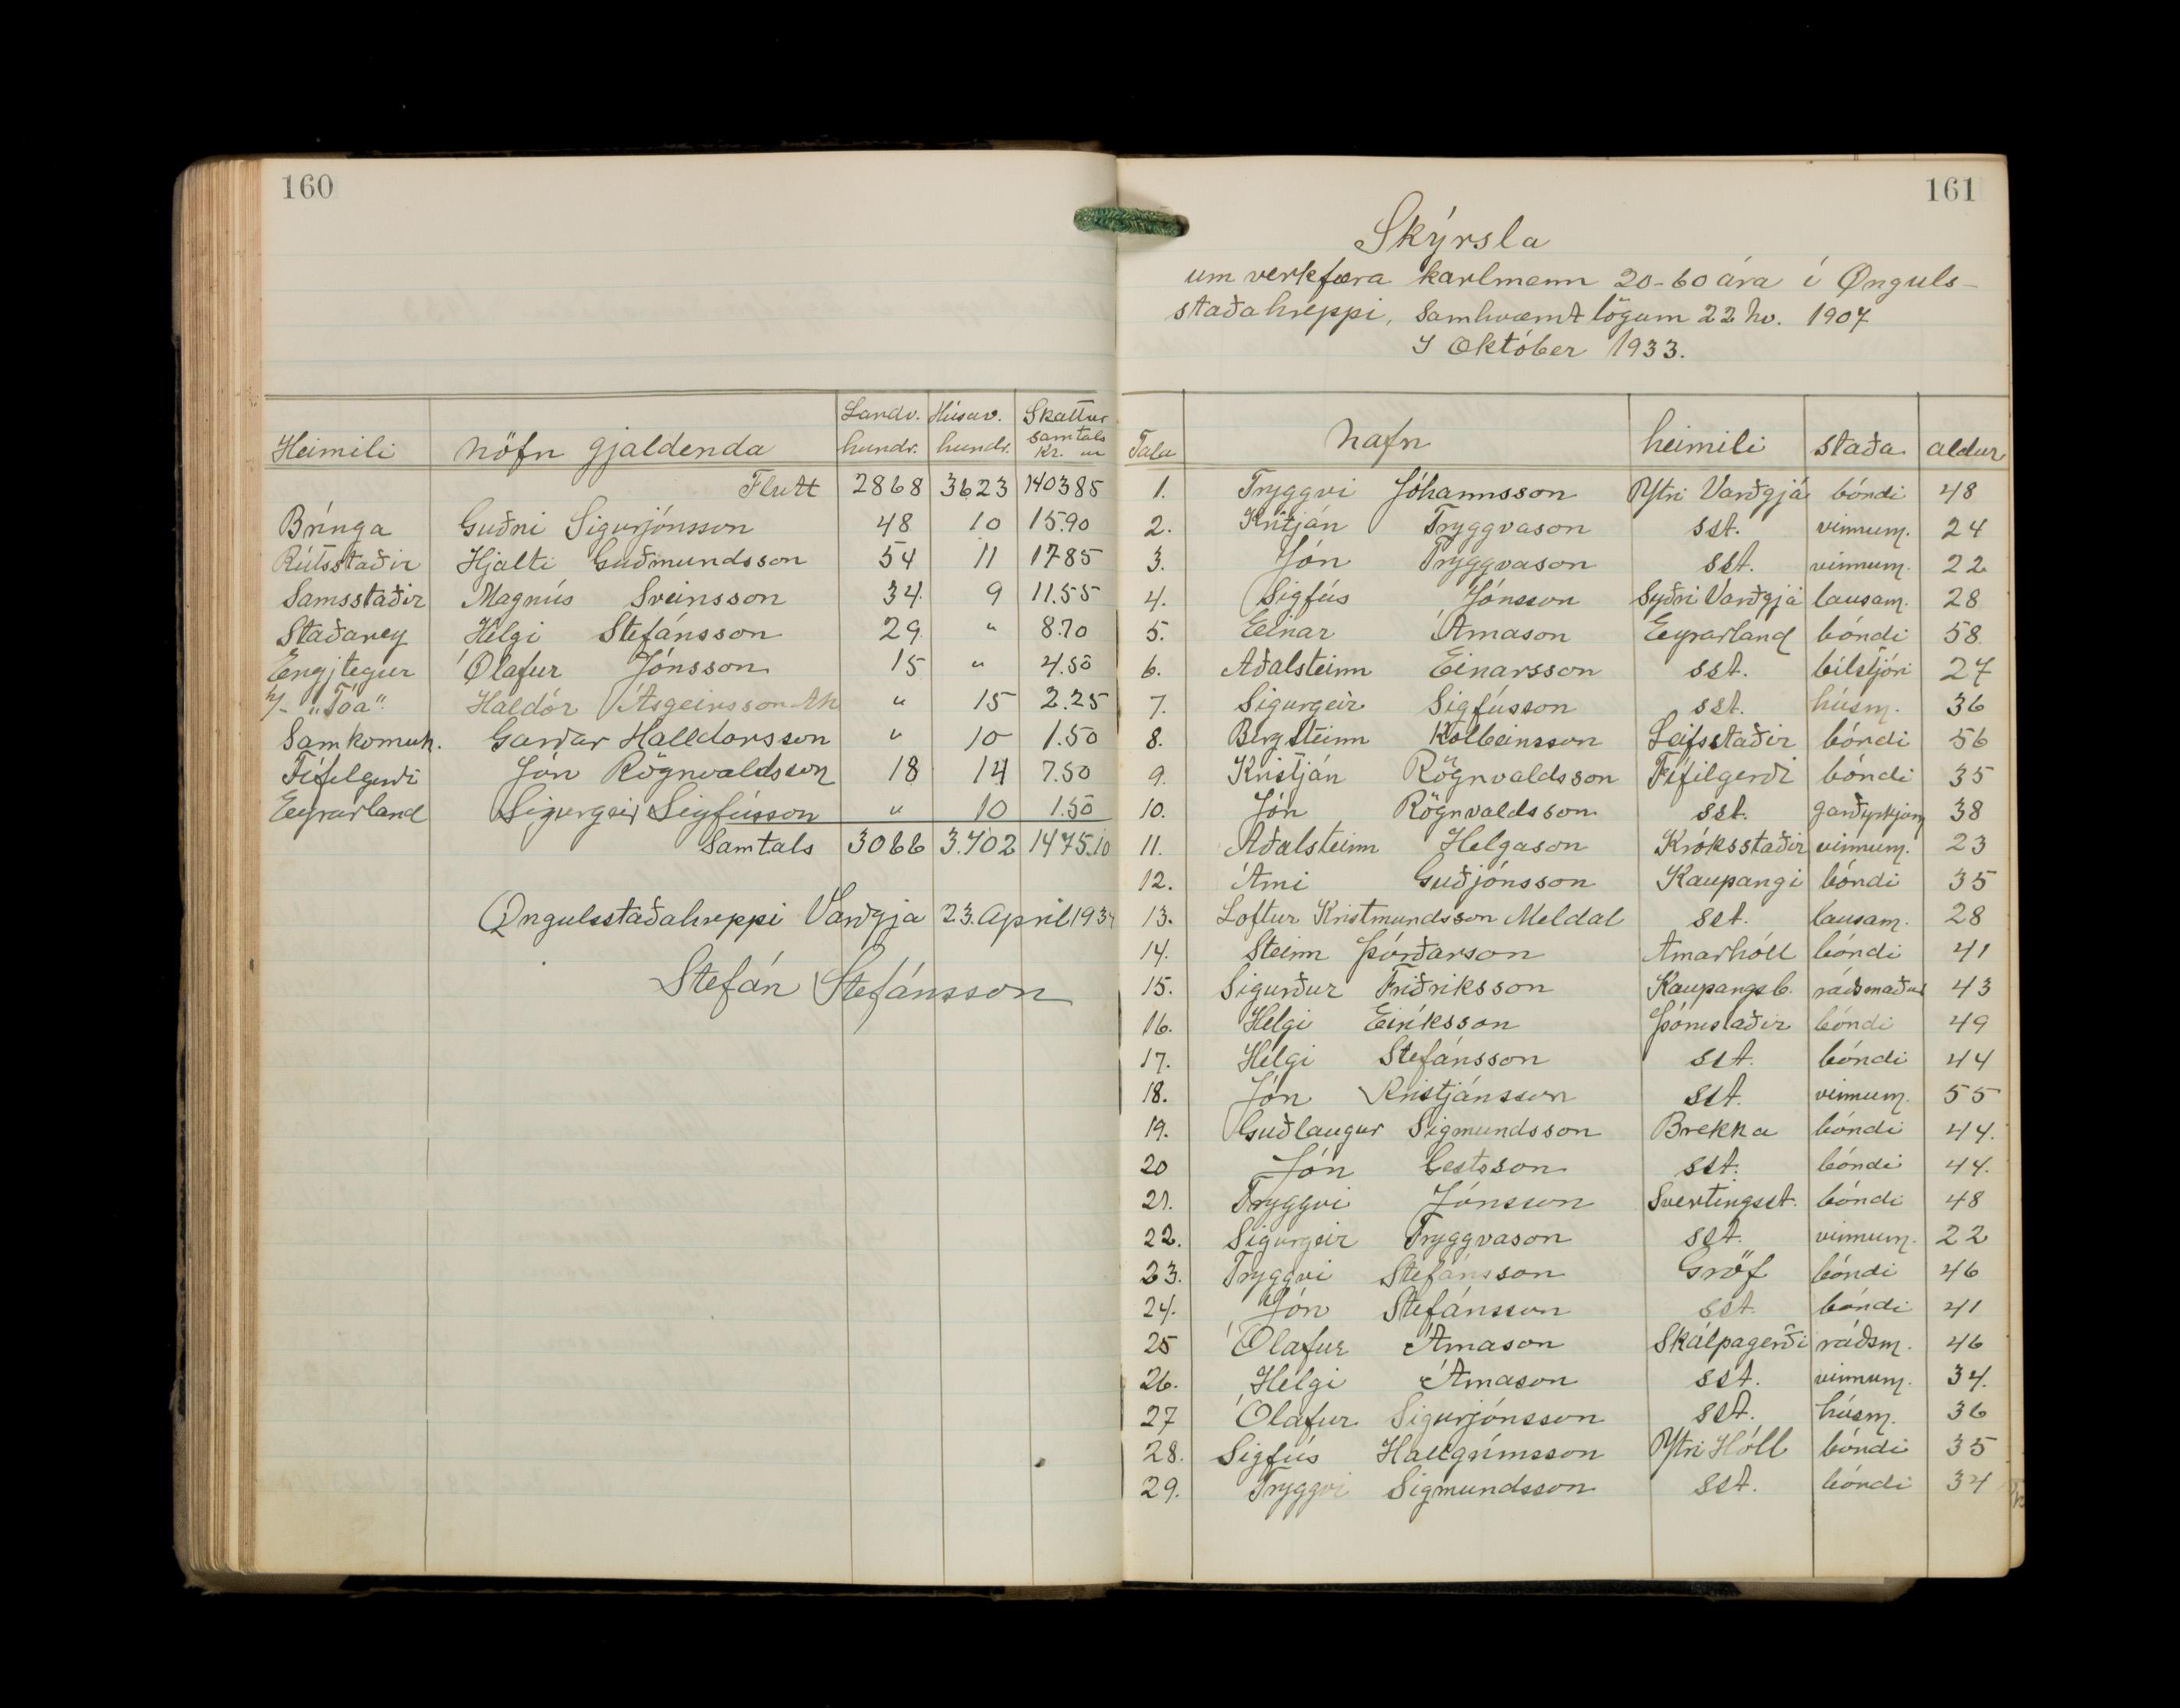 160
Landv. Húsav. Skattur
Heimili nöfn gjaldenda hundr. hundr. samtals
kr. au
Flutt 2868 3623 140385
Bringa Guðni Sigurjónsson 48 10 15.90
Rútsstaðir Hjalti Guðmundsson 54 11 1785
Samsstaðir Magnús Sveinsson 34 9 11.55
Staðarey Helgi Stefánsson 29 " 8.70
Engjtegur Ólafur Jónsson 15 " 4.50
"Tóa" Haldór Ásgeirsson Ak " 15 2.25
Samkomuh. Garðar Halldorsson " 10 1.50
Fífilgerði Jón Rögnvaldsson 18 14 7.50
Eyrarland Sigurgeir Sigfússon " 10 1.50
Samtals 3066 3.702 1475.10
Öngulsstaðahreppi Varðgja 23. April 1934
Stefán Stefánsson
161
Skýrsla
um verkfæra karlmenn 20-60 ára í Önguls-
staðahreppi, samkvæmt lögum 22 nv. 1907
Í Október 1933.
Tala nafn heimili staða aldur
1. Tryggvi Jóhannsson Ytri Varðgjá bóndi 48
2. Kritján Tryggvason sst. vinnum. 24
3. Jón Tryggvason sst. vinnum. 22
4. Sigfús Jónsson Syðri Varðgjá lausam. 28
5. Einar Árnason Eyrarland bóndi 58
6. Aðalsteinn Einarsson sst. bílstjóri 27
7. Sigurgeir Sigfússon sst. húsm. 36
8. Bergsteinn Kolbeinsson Leifsstaðir bóndi 56
9. Kristján Rögnvaldsson Fífilgerði bóndi 35
10. Jón Rögnvaldsson sst. garðyrkjum 38
11. Aðalsteinn Helgason Króksstaðir vinnum. 23
12. Árni Guðjónsson Kaupangi bóndi 35
13. Loftur Kristmundsson Meldal sst. lausam. 28
14. Steinn Þórðarson Arnarhóll bóndi 41
15. Sigurður Friðriksson Kaupangsb. ráðsmaður 43
16. Helgi Eiríksson Þórustaðir bóndi 49
17. Helgi Stefánsson sst. bóndi 44
18. Jón Kristjánsson sst. vinnum. 55
19. Guðlaugur Sigmundsson Brekka bóndi 44.
20 Jón Gestsson sst. bóndi 44.
21. Tryggvi Jónsson Svertingsst. bóndi 48
22. Sigurgeir Tryggvason sst. vinnum. 22
23. Tryggvi Stefánsson Gröf bóndi 46
24. Jón Stefánsson sst. bóndi 41
25 Ólafur Árnason Skálpagerði ráðsm. 46
26. Helgi Árnason sst. vinnum. 34.
27 Ólafur Sigurjónsson sst. húsm. 36
28. Sigfús Hallgrímsson Ytri Hóll bóndi 35
29. Tryggvi Sigmundsson sst. bóndi 34